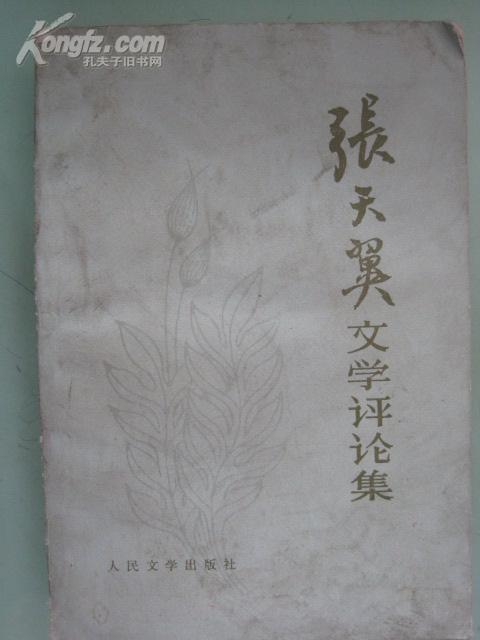 Kongfz.com
孔夫子旧书网
張天翼
文学评论集
人民文学出版社